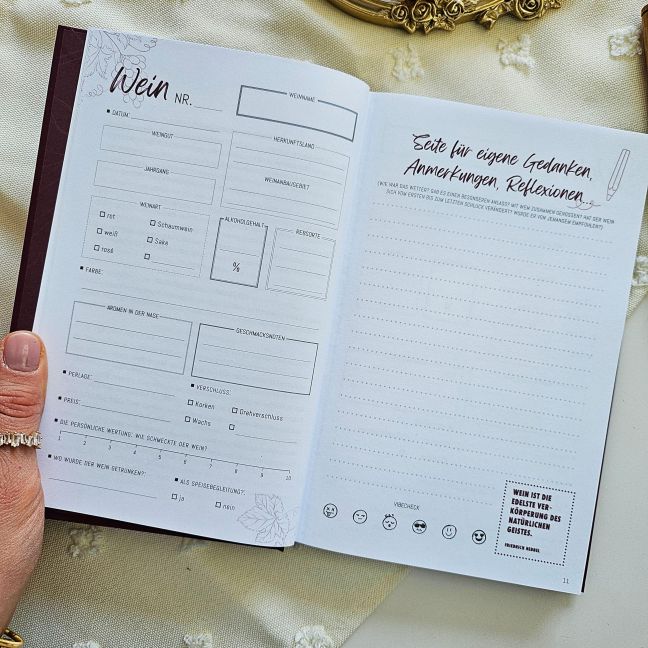 Wein NR.
WEINNAME
DATUM:
WEINGUT
HERKUNFTSLAND
JAHRGANG
WEINANBAUGEBIET
WEINART
rot
Schaumwein
weiß
Sake
rosé
ALKOHOLGEHALT
%
REBSORTE
FARBE:
AROMEN IN DER NASE
GESCHMACKSNOTEN
PERLAGE:
VERSCHLUSS:
Korken
Drehverschluss
PREIS:
Wachs
DIE PERSÖNLICHE WERTUNG: WIE SCHMECKTE DER WEIN?
1 2 3 4 5 6 7 8 9 10
WO WURDE DER WEIN GETRUNKEN?:
ALS SPEISEBEGLEITUNG?:
ja
nein
Seite für eigene Gedanken,
Anmerkungen, Reflexionen...
(WIE WAR DAS WETTER? GAB ES EINEN BESONDEREN ANLASS? MIT WEM ZUSAMMEN GENOSSEN? HAT DER WEIN
SICH VOM ERSTEN BIS ZUM LETZTEN SCHLUCK VERÄNDERT? WURDE ER VON JEMANDEM EMPFOHLEN?)
VIBECHECK
WEIN IST DIE
EDELSTE VER-
KÖRPERUNG DES
NATÜRLICHEN
GEISTES.
FRIEDRICH HEBBEL
11